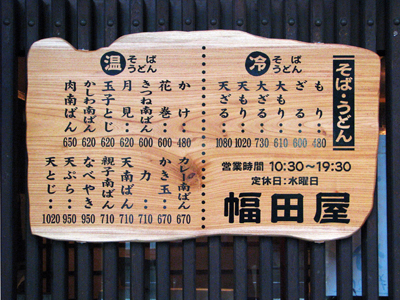 そば・うどん
冷 そば うどん
もり・・480
ざる・・500
大もり・610
大ざる・730
天もり・1020
天ざる・1080
営業時間 10:30〜19:30
定休日:水曜日
幅田屋
温 そば うどん
かけ・・480
花巻・・600
きつね南ばん 600
月見・・
玉子とじ 620
かしわ南ばん 620
肉南ばん 650
カレー南ばん 670
かき玉・670
力・・710
天南ばん 710
親子南ばん 710
なべやき 950
天ぷら・・950
天とじ・・1020